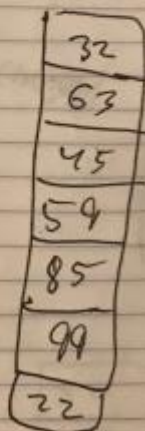 32
63
45
59
85
99
22